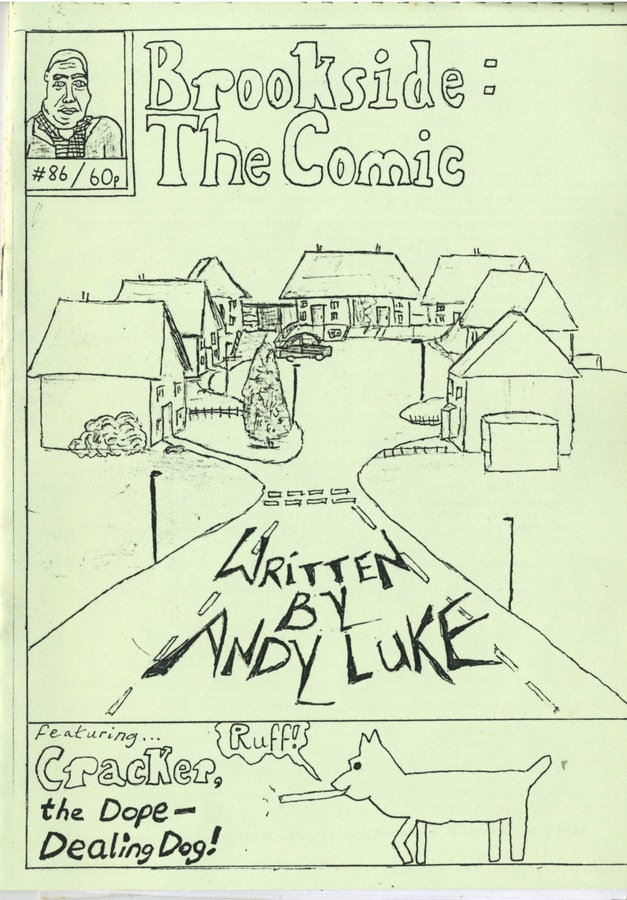 Brookside:
The Comic
#86/60p
WRITTEN
BY
ANDY LUKE
Featuring...
Cracker,
the Dope-
Dealing Dog!
Ruff!